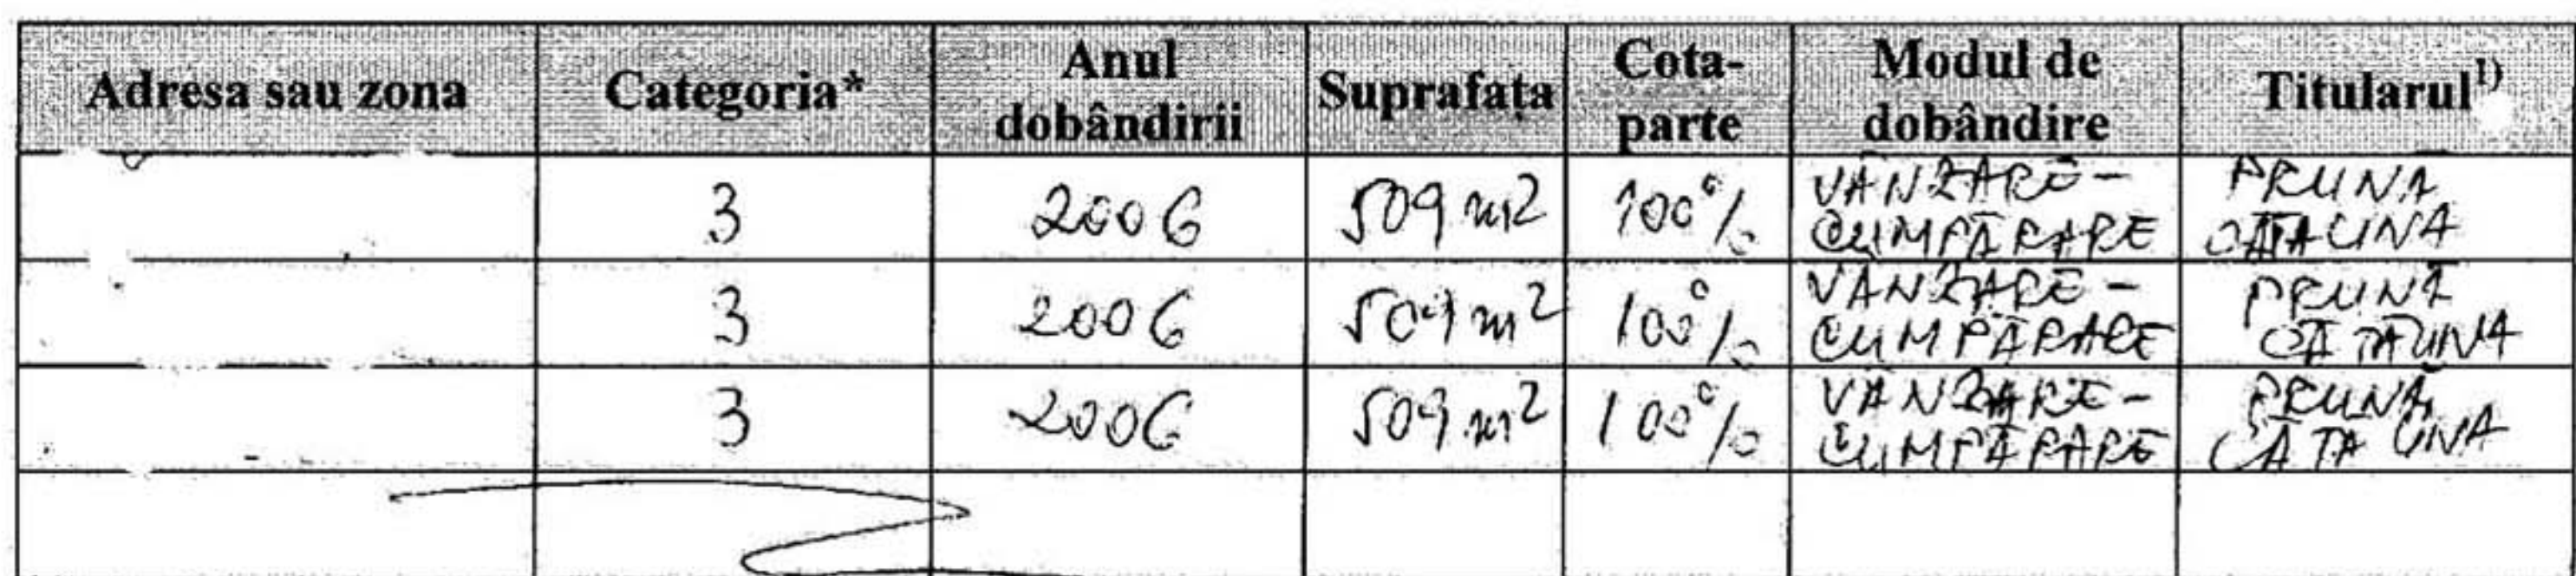 Adresa sau zona Categoria* Anul dobândirii Suprafața Cota-parte Modul de dobândire Titularul¹⁾
3 2006 509 m² 100% VÂNZARE-CUMPĂRARE PRUNĂ CĂTĂLINA
3 2006 509 m² 100% VÂNZARE-CUMPĂRARE PRUNĂ CĂTĂLINA
3 2006 509 m² 100% VÂNZARE-CUMPĂRARE PRUNĂ CĂTĂLINA